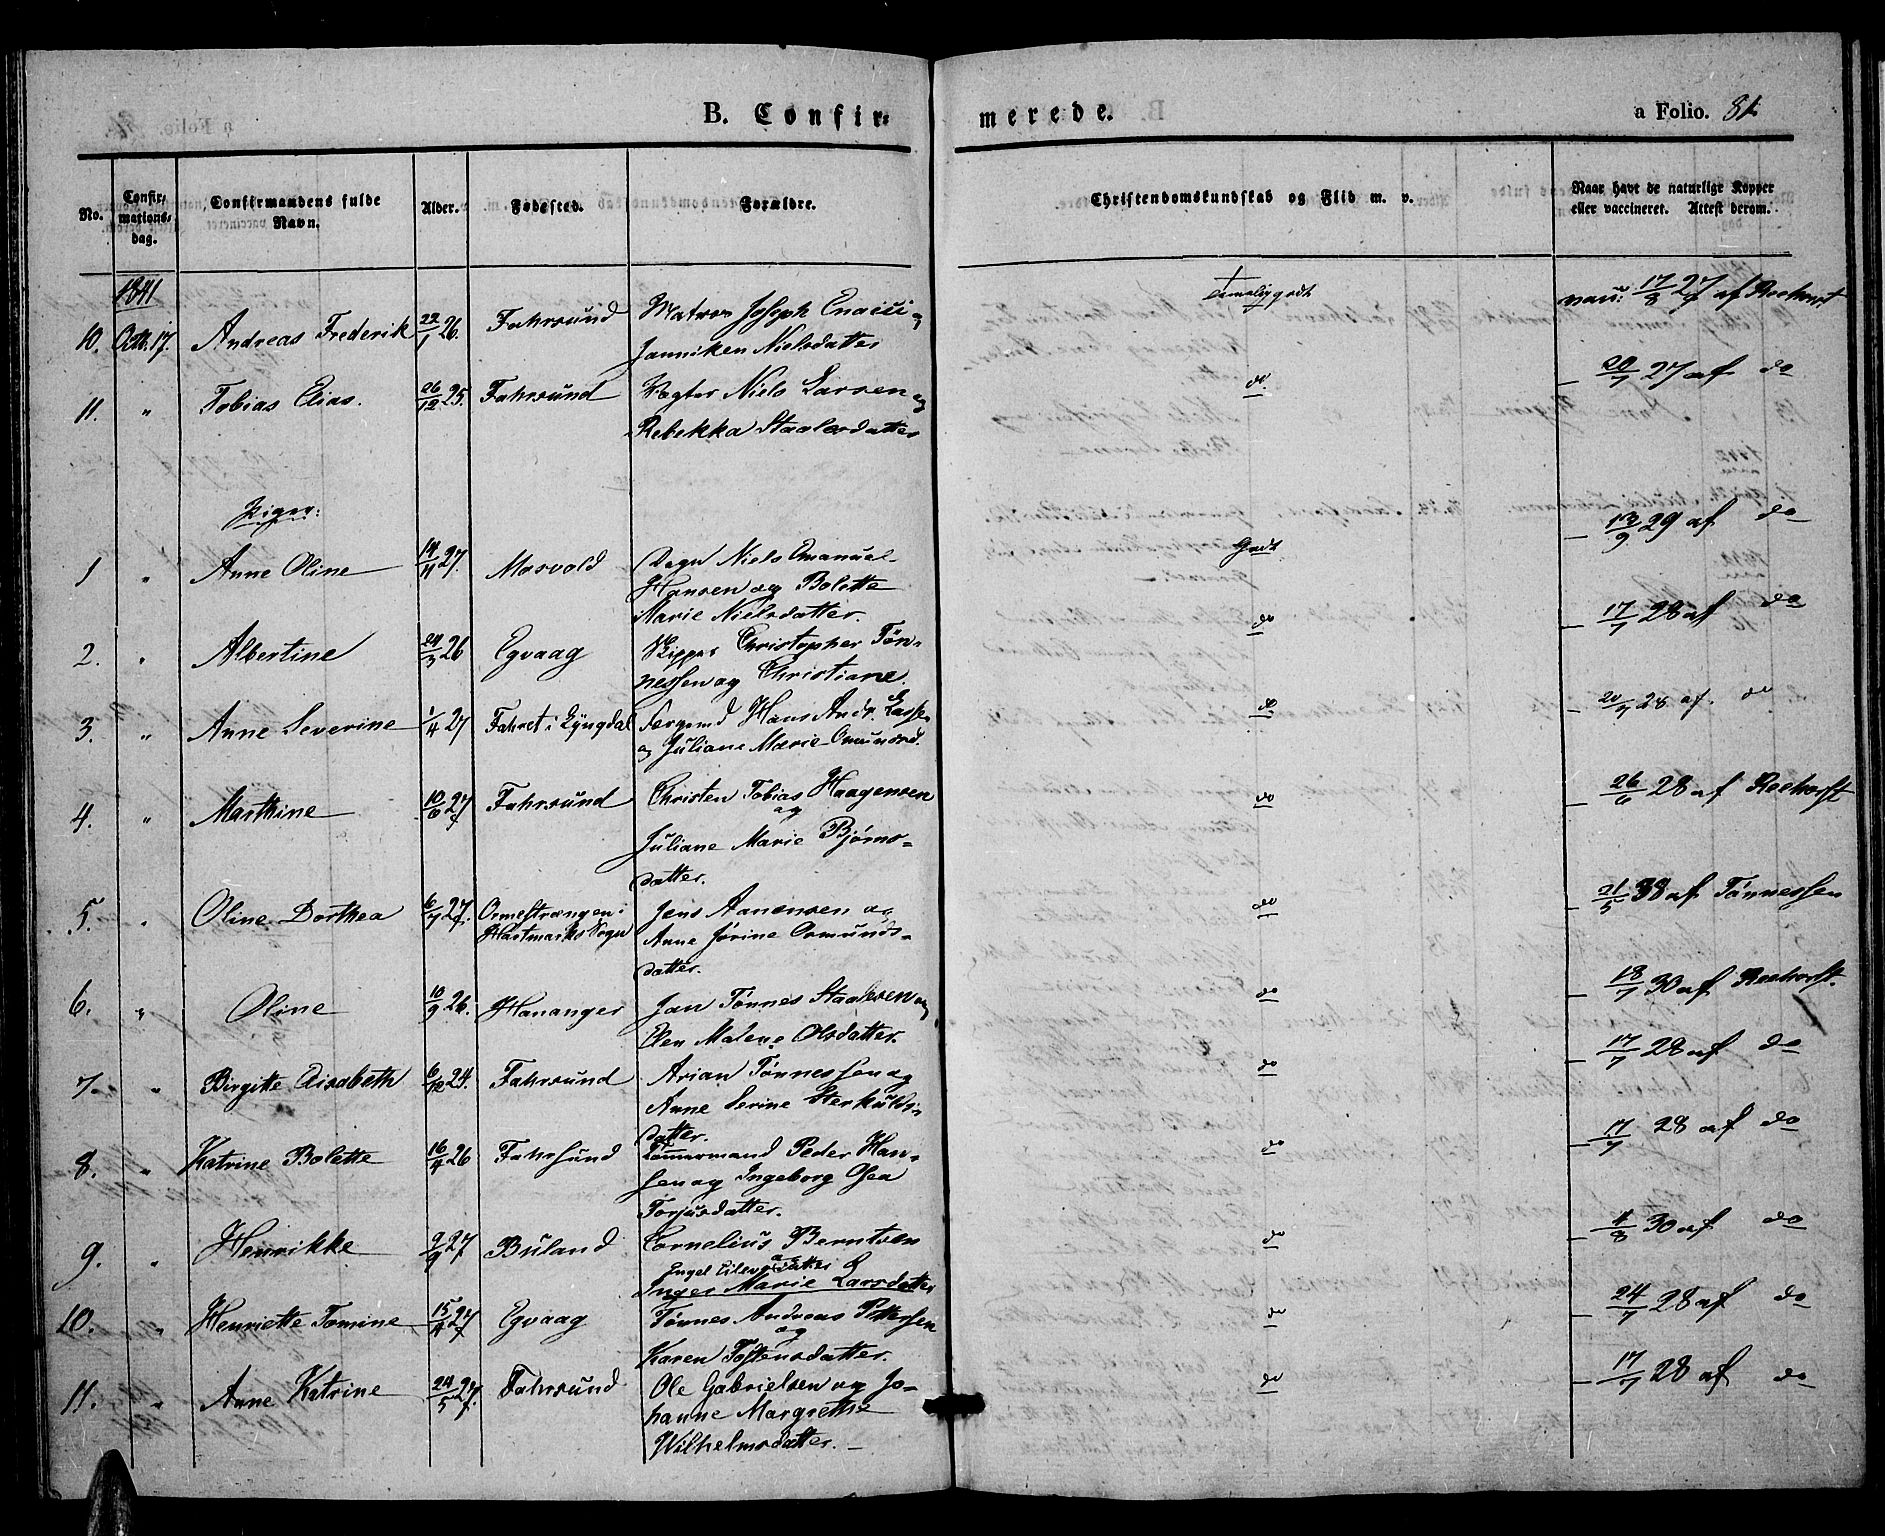 B. Confir-
merede.
a Folio. 81.
No.
Confir-
mations-
dag.
Confirmandens fulde
Navn.
Alder.
Fødested.
Forældre.
Christendomskundskab og Flid m. v.
Naar havt de naturlige Kopper
eller vaccineret. Attest derom.
1841
10. Octb. 17. Andreas Frederik 22/1 26. Fahrsund Matros Joseph
Janniken Nielsdatter
temelig godt
vac: 17/8 27 af Reehorst
11. " Tobias Elias. 26/12 25. Fahrsund Vogter Niels Larsen og
Rebekka Staalesdatter
do
20/7 27 af do
Piger:
1 " Anne Oline 14/11 27 Mosvold Niels Emanuel
Hansen og Bolette
Marie Nielsdatter.
Godt
13/9 29 af do
2. " Albertine 24/3 26 Egvaag Skipper Christopher Tøn-
nessen og Christiane.
do
17/7 28 af do
3. " Anne Severine 1/4 27 Fahret i Lyngdal Sergend Hans Andr. Lasse
og Juliane Marie Omundsd.
do
20/7 28 af do
4. " Marthine 10/6 27 Fahrsund Christen Tobias Haagensen
og
Juliane Marie Bjørns-
datter.
do
26/6 28 af Reehorst
5. " Oline Dorthea 6/7 27. Ormestrængen i
Hartmarks Sogn
Jens Aanensen og
Anne Jørine Ormunds-
datter.
do
21/5 38 af Tønnessen
6. " Oline 10/9 26. Hananger Jan Tønnes Staalesen og
Elen Malene Olsdatter.
do
18/7 30 af Reehorst.
7. " Birgitte Elisabeth 6/12 24. Fahrsund Arian Tønnessen og
Anne Serine Sterkulds-
datter.
do
17/7 28 af do
8. " Katrine Bolette 16/4 26 Fahrsund Tømmermand Peder Han-
sen og Ingeborg Osea
Torjusdatter.
do
17/7 28 af do
9. " Henrikke 9/9 27 Buland Cornelius Berntsen
og
Engel Eilevsdatter
Inger Marie Larsdatter
do
4/8 30 af do
10. " Henriette Tomine 15/4 27 Egvaag Tønnes Andreas Pettersen
og
Karen Tostensdatter.
do
24/7 28 af do
11. " Anne Katrine 24/5 27. Fahrsund Ole Gabrielsen og Jo-
hanne Margrethe
Wilhelmsdatter. –
do
17/7 28 af do